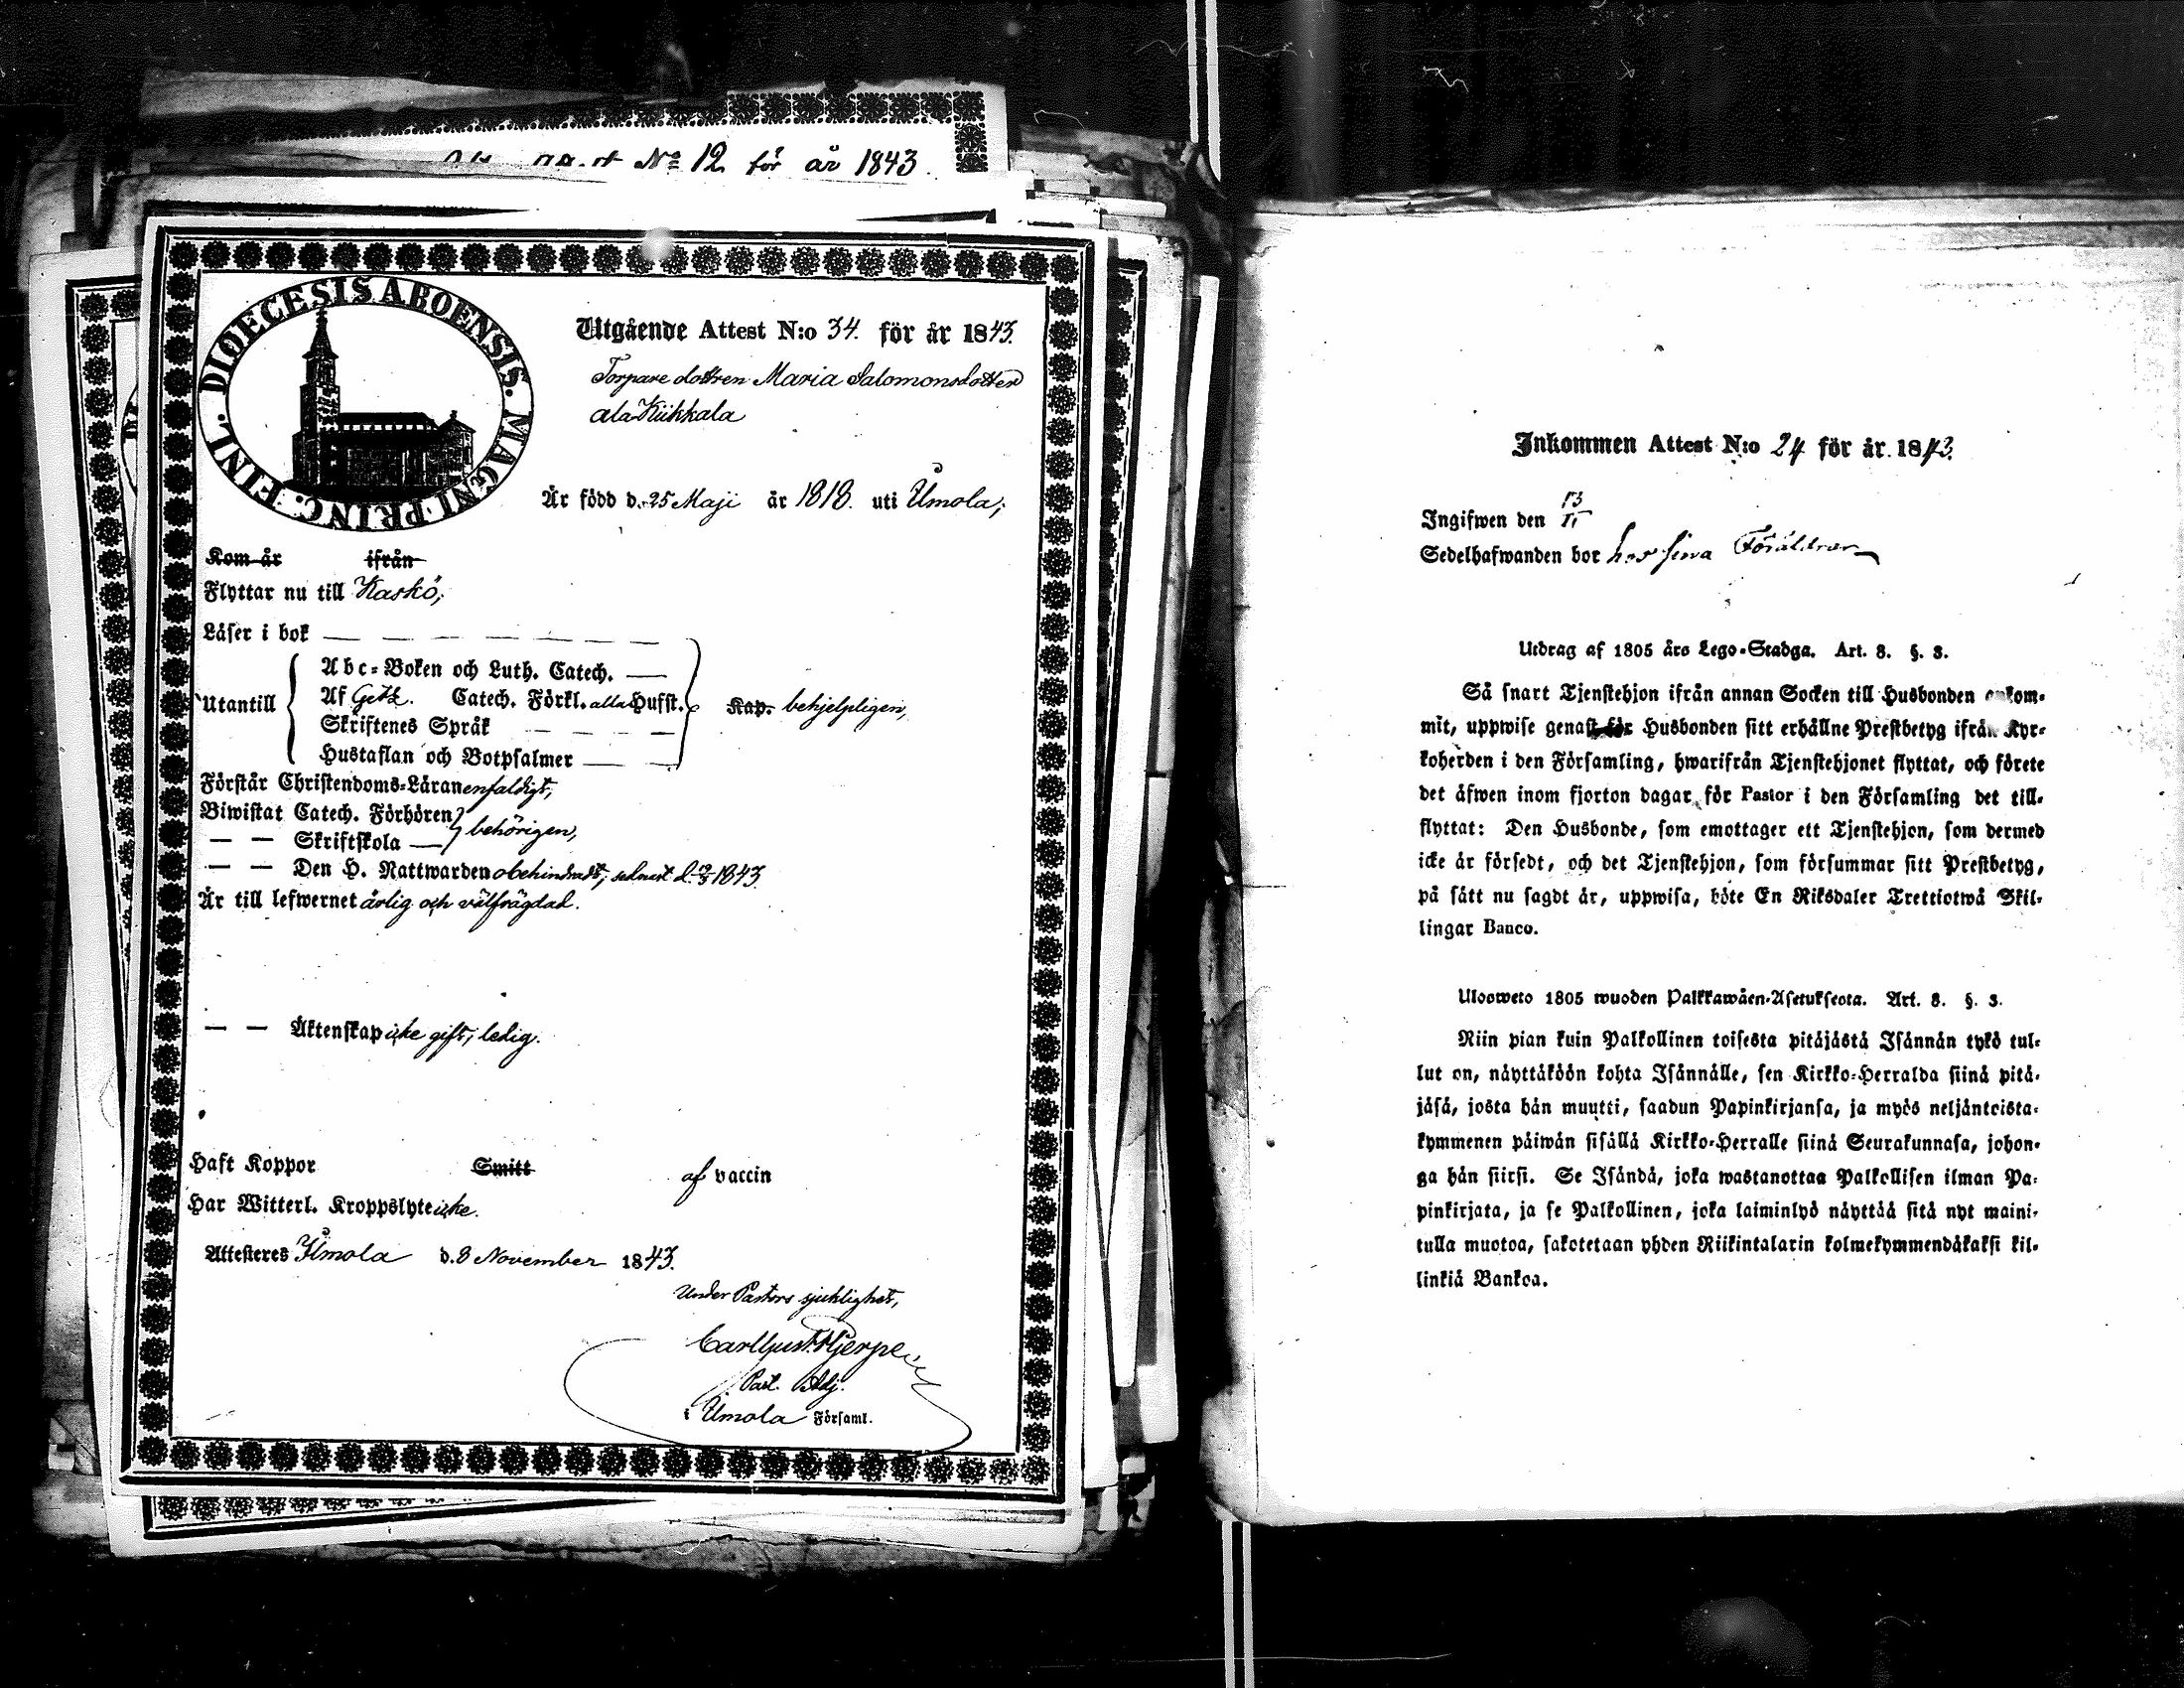 No 12 för år 1843.
DIOECESIS ABOENSIS. MAGNI PRINC. FINL.
Utgående Attest N:o 34. för år 1843.
Torpare dottren Maria Salomonsdotter
ala Kiikkala
Är född d. 25 Maji år 1818. uti Ilmola;
Kom år ifrån
Flyttar nu till Kaskö;
Läser i bok — — — — — — —
Utantill
Abc-Boken och Luth. Catech. —
Af Catech. Förkl. alla Hufst.
Skriftenes Språk — — — —
Hustaflan och Botpsalmer — —
Kap. behjelpligen,
Förstår Christendoms-Läran enfaldigt,
Biwistat Catech. Förhören
— — Skriftskola — behörigen,
— — Den H. Nattwarden obehindradt, senast d. 1843.
Är till lefwernet ärlig och välfrägdad.
— — Äktenskap icke gift, ledig.
Haft Koppor Smitt af vaccin
Har Witterl. Kroppslyte icke.
Attesteres Ilmola d. 8 November 1843.
Under Pastors sjuklighet,
Past. Adj.
i Ilmola Församl.
Inkommen Attest N:o 24 för år 1843.
Ingifwen den 13/11
Sedelhafwanden bor hos sina Föräldrar
Utdrag af 1805 års Lego-Stadga. Art. 8. §. 3.
Så snart Tjenstehjon ifrån annan Socken till Husbonden ankom-
mit, uppwise genast för Husbonden sitt erhållne Prestbetyg ifrån Kyr-
koherden i den Församling, hwarifrån Tjenstehjonet flyttat, och förete
det äfwen inom fjorton dagar för Pastor i den Församling det till-
flyttat: Den Husbonde, som emottager ett Tjenstehjon, som dermed
icke är försedt, och det Tjenstehjon, som försummar sitt Prestbetyg,
på sätt nu sagdt är, uppwisa, böte En Riksdaler Trettiotwå Skil-
lingar Banco.
Ulosweto 1805 wuoden Palkkawäen-Asetuksesta. Art. 8. §. 3.
Niin pian kuin Palkollinen toisesta pitäjästä Isännän tykö tul-
lut on, näyttäköön kohta Isännälle, sen Kirkko-Herralda siinä pitä-
jäsä, josta hän muutti, saadun Papinkirjansa, ja myös neljäntoista-
kymmenen päiwän sisällä Kirkko-Herralle siinä Seurakunnasa, johon-
ga hän siirsi. Se Isändä, joka wastanottaa Palkollisen ilman Pa-
pinkirjata, ja se Palkollinen, joka laiminlyö näyttää sitä nyt maini-
tulla muotoa, sakotetaan yhden Riikintalarin kolmekymmendäkaksi kil-
linkiä Bankoa.